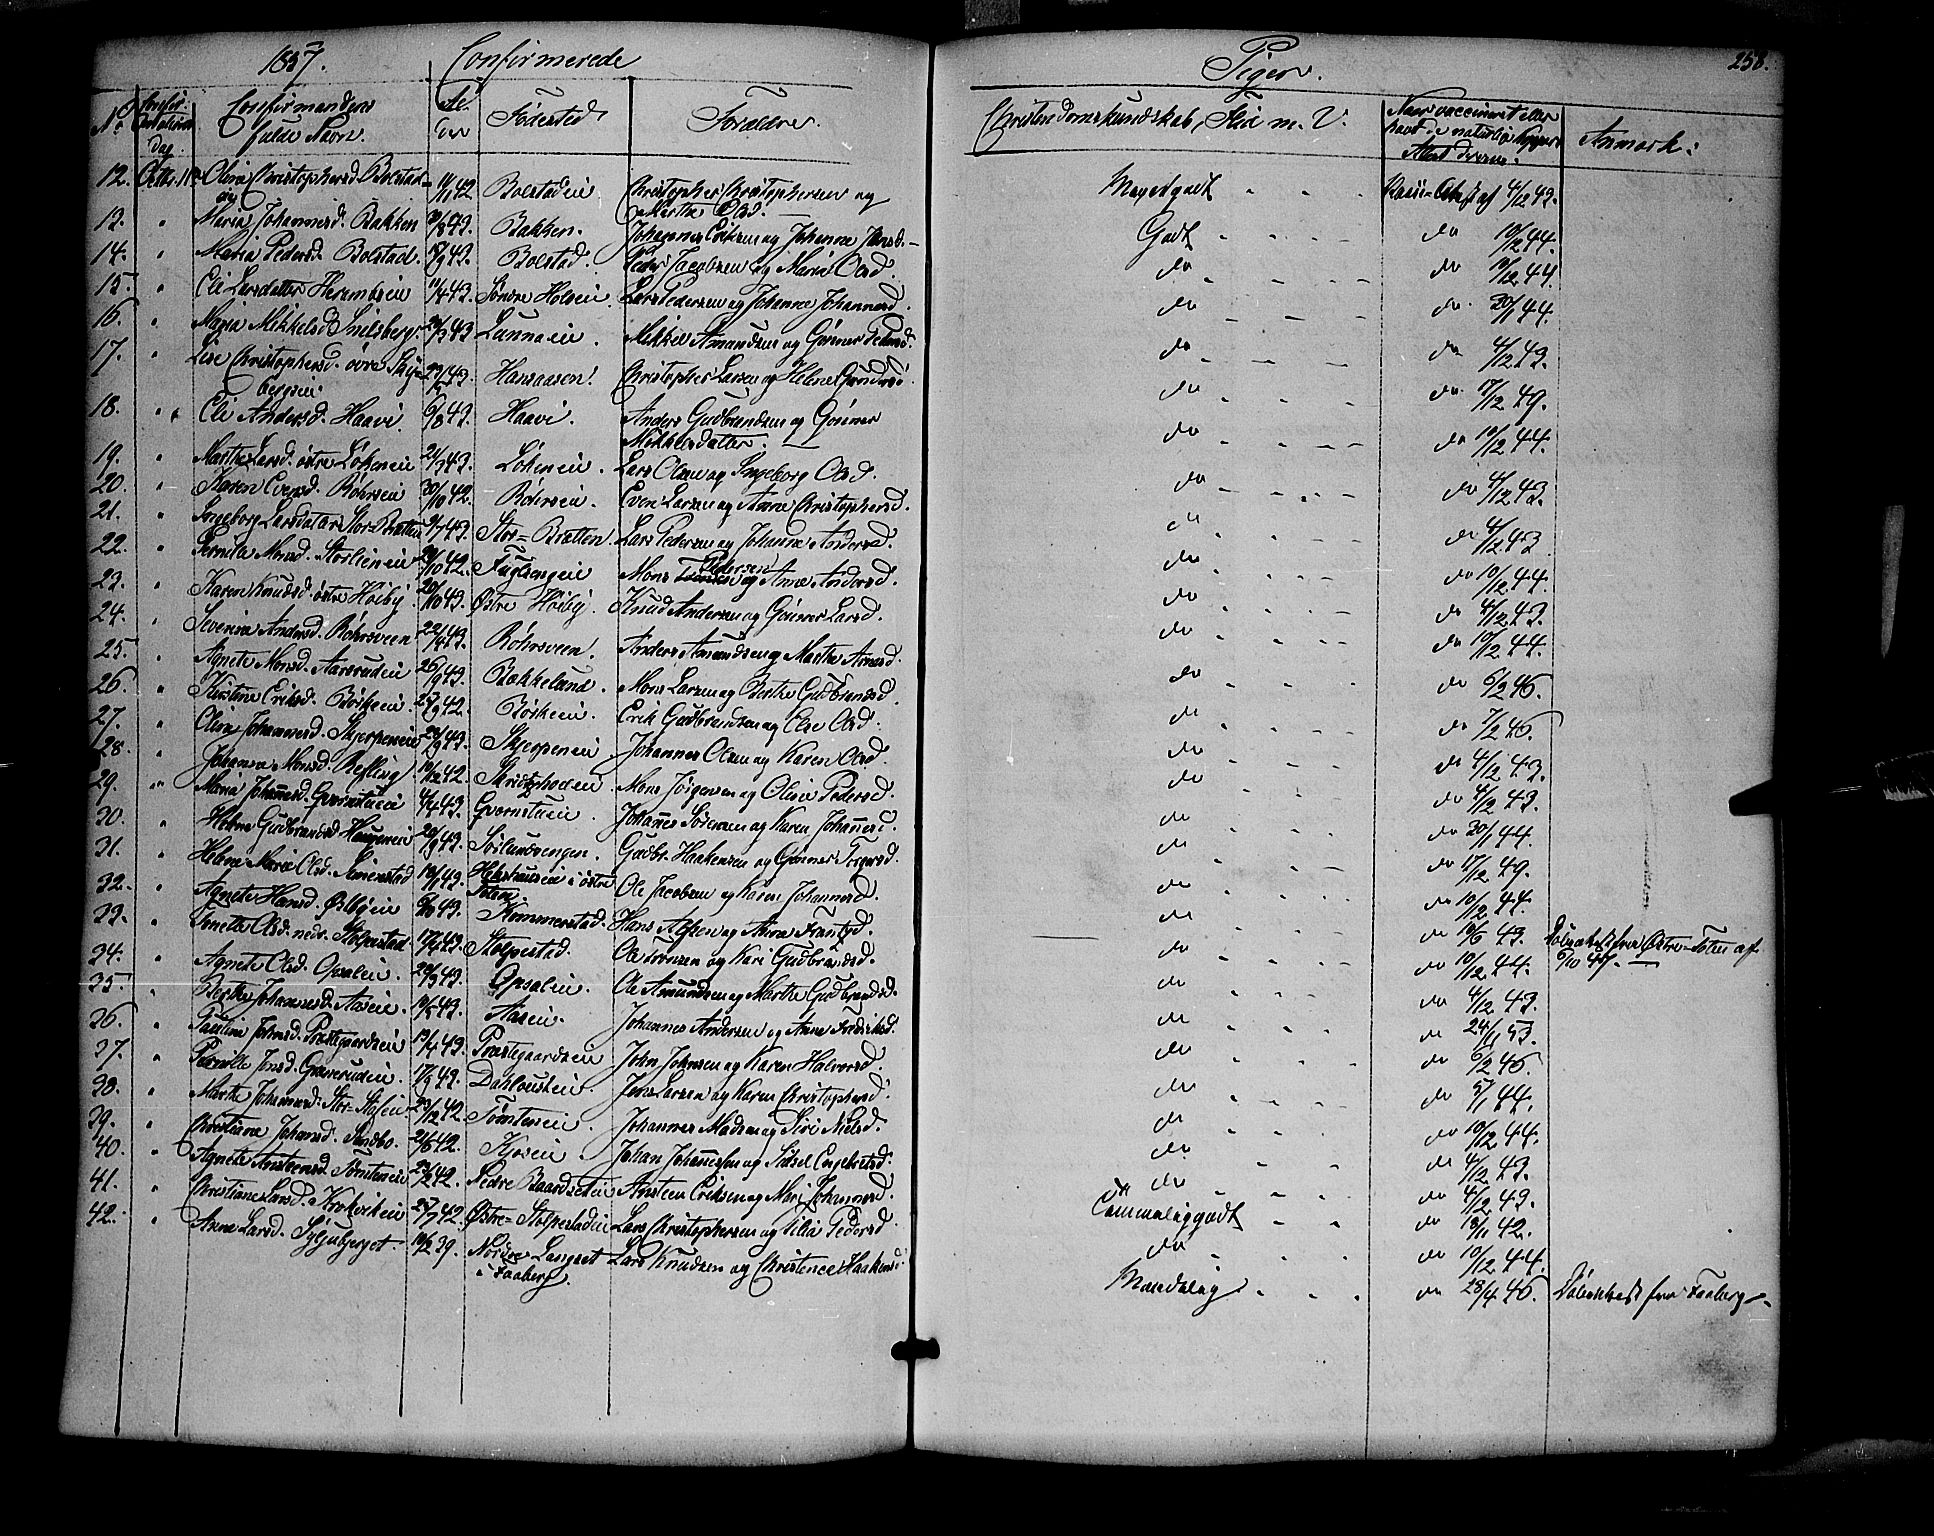 1857. Confirmerede Piger. 258.
No Confir-mations Dag. Confirmandens fulde Navn. Al-der Fødested Forældre. Christendomskundskab, Flid m. V. Naar vaccineret eller havt de naturlige Kopper Attest derom: Anmærk:
12. Octbr. 11te Olina Christophersd. Bolstad- 11/11 42 Bolstadeie Christopher Christophersen og Meget godt Vacc-Attest af 4/12 43.
eie Marthe Olsd.
13. " Maria Johannesd. Bakken /8 43. Bakken. Johannes Eriksen og Johanne Jensd. Godt do 10/12 44.
14. " Maria Pedersd. Bolstad. /9 43. Bolstad. Peder Jacobsen og Maria Olsd. do do 10/12 44.
15. " Eli Larsdatter Herambseie 11/4 43. Søndre Holseie. Lars Pedersen og Johanne Johannesd. do do 30/1 44.
16. " Maria Mikkelsd. Snilsberg. /3 43 Lunnaeie. Mikkel Amundsen og Gønner Pedersd. do do 4/12 43.
17. " Lise Christophersd. øvre Sky- 23/ 43. Hansaasen. Christopher Larsen og Helene Gundersd. do do 17/12 49.
bergseie.
18. " Eli Andersd. Haavi. 6/8 43. Haavi. Anders Gudbrandsen og Gønner do do 10/12 44.
Mikkelsdatter
19. " Marthe Larsd. østre Løkeneie 21/3 43. Løkeneie. Lars Olsen og Ingeborg Olsd. do do 4/12 43.
20. " Karen Evensd. Røhrseie 30/10 42. Røhrseie. Even Larsen og Anne Christophersd. do do 4/12 43
21. " Ingeborg Larsdatter Stor-Bratten 9/7 43. Stor-Bratten. Lars Pedersen og Johanne Andersd. do do 10/12 44.
22. " Pernila Monsd. Storlieneie 29/10 42. Fuglsengeie Mons Pedersen og Anne Andersd. do do 4/12 43.
23. " Karen Knudsd. østre Høiby. 20/10 43. Østre Høiby. Knud Andersen og Gønner Larsd. do do 10/12 44.
24. " Severine Andersd. Røhrsveen 22/4 43. Røhrsveen. Anders Amundsen og Marthe Arnesd. do do 6/2 46.
25. " Agnete Monsd. Aarsrudeie 26/9 43. Bækkelund. Mons Larsen og Berthe Gudbrandsd. do do 7/2 46.
26. " Kirstine Eriksd. Børkeeie. 27/9 42. Børkeeie. Erik Gudbrandsen og Else Olsd. do do 4/12 43.
27. " Olina Johannesd. Skjerpeneie 29/9 43. Skjerpeneie Johannes Olsen og Karen Olsd. do do 4/12 43.
28. " Johanna Monsd. Refling 19/12 42. Skridshoeie. Mons Jørgensen og Oline Pedersd. do do 30/1 44.
29. " Maria Johannesd. Gvernstueie 4/4 43. Gvernstueie. Johannes Sørensen og Karen Johannesd. do do 17/12 49.
30. " Helene Gudbrandsd. Haugeneie 20/9 43. Sørlundsengen. Gudbr. Haakensen og Gønner Torgersd. do do 10/12 44.
31. " Helene Marie Olsd. Simenstad 19/11 43. i østre Toten. Ole Jacobsen og Karen Johannesd. do do 10/6 43. Døbeattest fra Østre-Toten af
32. " Agnete Hansd. Østbyeie /10 43. Kommerstad. Hans Alfsen og Anne Frantsd. do do 10/12 44. 6/10 47.
33. " Jonette Olsd. nedr. Stolpestad. 17/4 43. Stolpestad. Ole Trønsen og Kari Gudbrandsd. do do 4/12 43.
34. " Agnete Olsd. Opsaleie. 29/3 43. Opsaleie. Ole Amundsen og Marthe Gudbrandsd. do do 24/11 53.
35. " Berthe Johannesd. Aaseie. 10/8 43. Aaseie. Johannes Andersen og Anne Fredriksd. do do 6/2 46.
36. " Pauline Johnsd. Præstegaardseie 19/4 43. Præstegaardseie John Johnsen og Karen Halvorsd. do do 5/1 44.
37. " Pernille Jensd. Graverudeie. 17/9 43. Dahloustuen. Jens Larsen og Karen Christophersd. do do 10/12 44.
38. " Marthe Johannesd. Stor-Stafseie. 23/12 42. Tømteneie. Johannes Madsen og Siri Nielsd. do do 4/12 43.
39. " Christiane Johansd. Sandbo. 21/6 42. Kjoseie. Johan Johannessen og Sidsel Engebretsd. do do 4/12 43.
40. " Agnete Ansteensd. Tømteneie 23/2 42. Nedre Baardseteie Ansteen Eriksen og Mari Johannesd. Temmelig godt do 18/11 42.
41. " Christiane Larsd. Krokvikeie 27/7 42. Østre-Stolpestadeie Lars Christophersen og Silia Pedersd. do do 10/12 44.
42. " Anne Larsd. Syljuberget. 10/2 39. Nordre Langset Lars Knudsen og Christence Haakensd. Maadelig do 28/4 46. Døbeattest fra Faaberg.
i Faaberg.